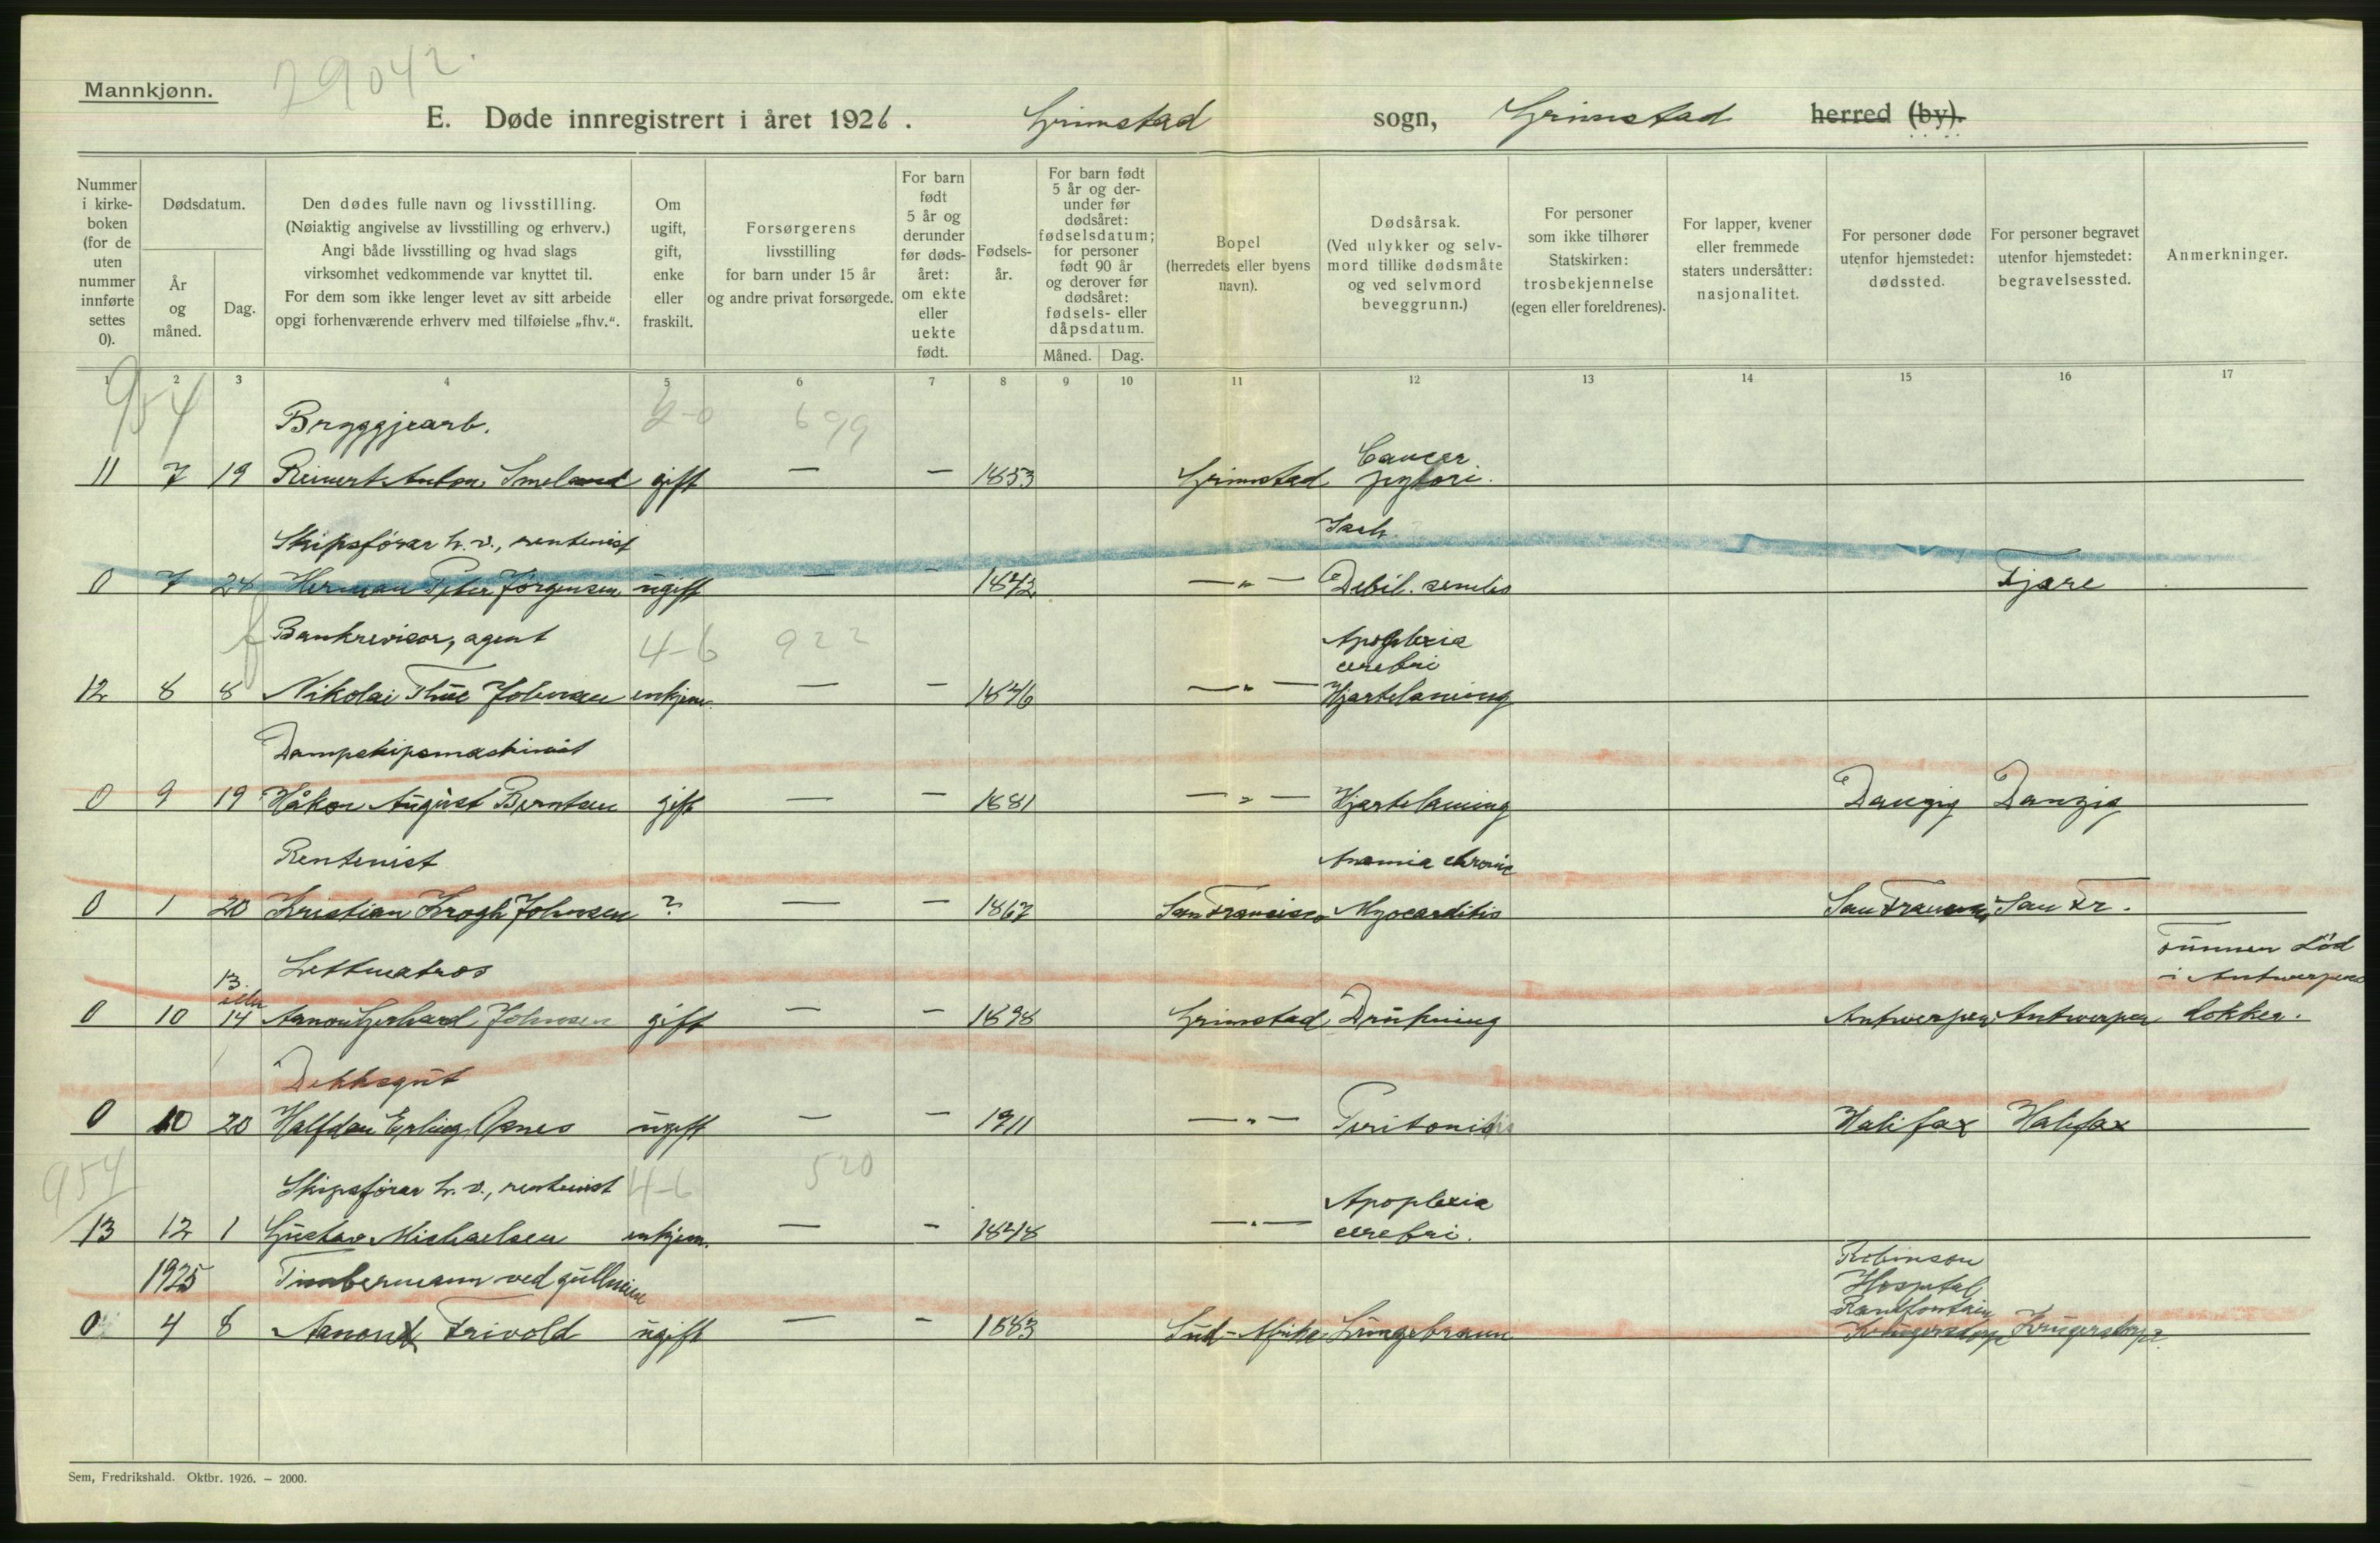 29042.
Mannkjønn.
E. Døde innregistrert i året 1926. Grimstad sogn, Grimstad herred (by).
Nummer i kirke-boken (for de uten nummer innførte settes 0).
Dødsdatum.
År og måned.
Dag.
Den dødes fulle navn og livsstilling.
(Nøiaktig angivelse av livsstilling og erhverv.)
Angi både livsstilling og hvad slags
virksomhet vedkommende var knyttet til.
For dem som ikke lenger levet av sitt arbeide
opgi forhenværende erhverv med tilføielse „fhv.“.
Om ugift, gift, enke eller fraskilt.
Forsørgerens
livsstilling
for barn under 15 år
og andre privat forsørgede.
For barn født 5 år og derunder før døds-året: om ekte eller uekte født.
Fødsels-år.
For barn født 5 år og der-under før dødsåret: fødselsdatum; for personer født 90 år og derover før dødsåret: fødsels- eller dåpsdatum.
Måned. Dag.
Bopel
(herredets eller byens
navn).
Dødsårsak.
(Ved ulykker og selv-
mord tillike dødsmåte
og ved selvmord
beveggrunn.)
For personer
som ikke tilhører
Statskirken:
trosbekjennelse
(egen eller foreldrenes).
For lapper, kvener
eller fremmede
staters undersåtter:
nasjonalitet.
For personer døde
utenfor hjemstedet:
dødssted.
For personer begravet
utenfor hjemstedet:
begravelsessted.
Anmerkninger.
1 2 3 4 5 6 7 8 9 10 11 12 13 14 15 16 17
954
Bryggjearb. 2-0 699
Cancer
11 7 19 Reinert Anton Smeland gift — — 1853 Grimstad pylori.
Skipsförar h. v., rentenist
0 7 24 Herman Peter Jörgensen ugift — — 1842 —„— Debil. senilis Fjære
Bankrevisor, agent 4-6 922 Apoplexia
cerebri
12 8 8 Nikolai Thue Johnsen enkjem. — — 1846 —„— Hjartelaming
Dampskipsmaskinist
0 9 19 Håkon August Berntsen gift — — 1881 —„— Hjartelaming Danzig Danzig
Rentenist Anæmia chronic
0 1 20 Kristian Krogh Johnsen ? — — 1867 San Francisco Myocarditis San Francisco San Fr.
Lettmatros Funnen död
13. i Antwerpens
eller
0 10 14 Aanon Gerhard Johnsen gift — — 1898 Grimstad Drukning Antwerpen Antwerpen dokker.
Dekksgut
0 10 20 Halfdan Erling Osnes ugift — — 1911 —„— Peritonitis Halifax Halifax
954 Skipsförar h. v., rentenist 4-6 520 Apoplexia
13 12 1 Gustav Michaelsen enkjem. — — 1848 —„— cerebri.
1925 Timbermann ved gullmine Robinson
Hospital
Randfontein
0 4 8 Aanond Frivold ugift — — 1883 Sud-Afrika Lungebraun Krugersdorp Krugersdorp.
Sem, Fredrikshald. Oktbr. 1926. – 2000.